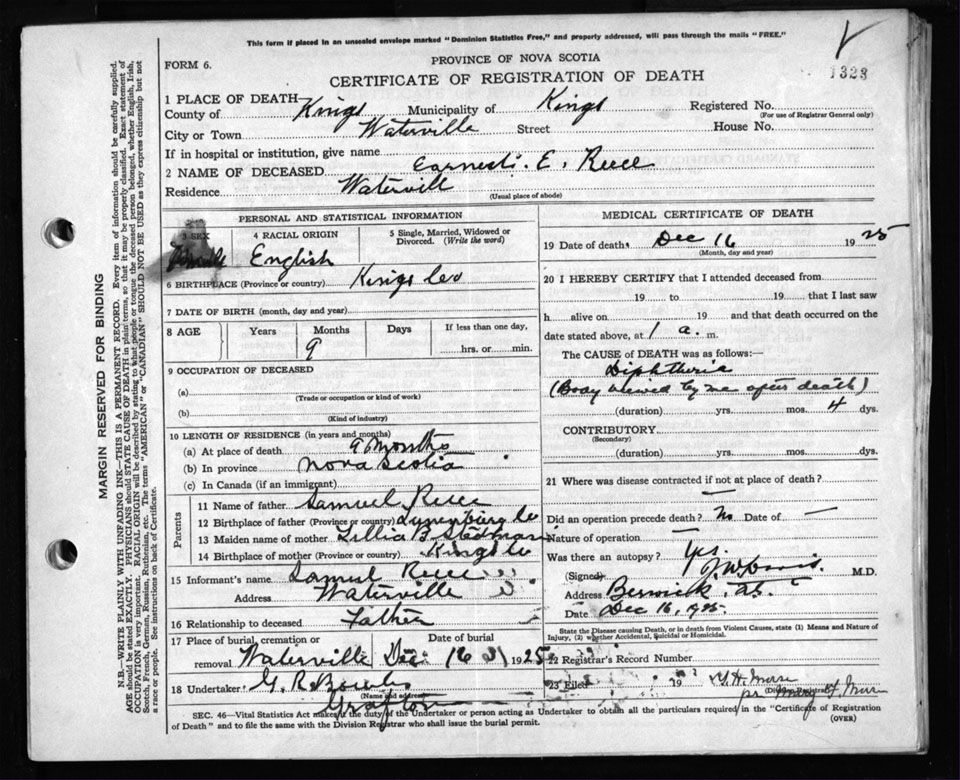 This form if placed in an unsealed envelope marked "Dominion Statistics Free," and properly addressed, will pass through the mails "FREE."
FORM 6.
PROVINCE OF NOVA SCOTIA
CERTIFICATE OF REGISTRATION OF DEATH
1323
MARGIN RESERVED FOR BINDING
N.B.—WRITE PLAINLY WITH UNFADING INK—THIS IS A PERMANENT RECORD. Every item of information should be carefully supplied.
AGE should be stated EXACTLY. PHYSICIANS should STATE CAUSE OF DEATH in plain terms, so that it may be properly classified. Exact statement of
OCCUPATION is very important. RACIAL ORIGIN will be described by stating to what people or tongue the deceased person belonged, whether English, Irish,
Scotch, French, German, Russian, Ruthenian, etc. The terms "AMERICAN" or "CANADIAN" SHOULD NOT BE USED as they express citizenship but not
a race or people. See instructions on back of Certificate.
1 PLACE OF DEATH—
County of Kings Municipality of Kings Registered No.
(For use of Registrar General only)
City or Town Waterville Street House No.
If in hospital or institution, give name
2 NAME OF DECEASED Earnest. E. Reece
Residence Watervill
(Usual place of abode)
PERSONAL AND STATISTICAL INFORMATION
3 SEX 4 RACIAL ORIGIN English
5 Single, Married, Widowed or
Divorced. (Write the word)
6 BIRTHPLACE (Province or country) Kings Co
7 DATE OF BIRTH (month, day and year)
8 AGE Years Months Days If less than one day,
9 hrs. or min.
9 OCCUPATION OF DECEASED
(a)
(Trade or occupation or kind of work)
(b)
(Kind of industry)
10 LENGTH OF RESIDENCE (in years and months)
(a) At place of death 9 months
(b) In province Nova Scotia
(c) In Canada (if an immigrant)
Parents
11 Name of father Samuel Reece
12 Birthplace of father (Province or country) Lunenburg Co
13 Maiden name of mother Lillia B. Stedman
14 Birthplace of mother (Province or country) Kings Co
15 Informant's name Samuel Reece
Address Waterville
16 Relationship to deceased Father
17 Place of burial, cremation or Date of burial
removal Waterville Dec 16 1925
18 Undertaker G. R.
(Name and address)
Grafton
MEDICAL CERTIFICATE OF DEATH
19 Date of death Dec 16 1925
(Month, day and year)
20 I HEREBY CERTIFY that I attended deceased from
19 to 19 that I last saw
h alive on 19 and that death occurred on the
date stated above, at 1 a. m.
The CAUSE OF DEATH was as follows:—
Diphtheria
(Body viewed by me after death)
(duration) yrs. mos. 4 dys.
CONTRIBUTORY
(Secondary)
(duration) yrs. mos. dys.
21 Where was disease contracted if not at place of death?
—
Did an operation precede death? No Date of —
Nature of operation
Was there an autopsy? Yes.
(Signed) M.D.
Address Berwick, N.S.
Date Dec 16, 1925.
State the Disease causing Death, or in death from Violent Causes, state (1) Means and Nature of
Injury, (2) whether Accidental, Suicidal or Homicidal.
22 Registrar's Record Number
23 Filed 19
SEC. 46—Vital Statistics Act makes it the duty of the Undertaker or person acting as Undertaker to obtain all the particulars required in the "Certificate of Registration
of Death" and to file the same with the Division Registrar who shall issue the burial permit. (OVER)